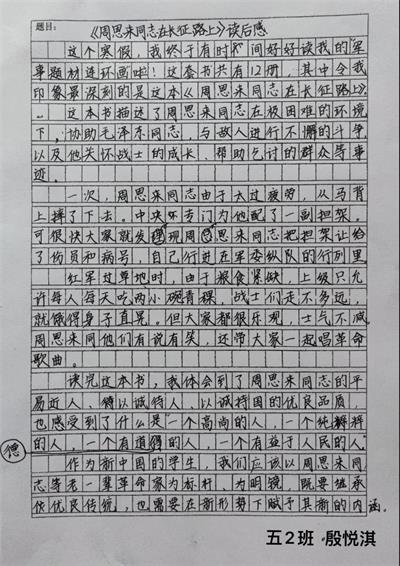 题目:《周恩来同志在长征路上》读后感
这个寒假，我终于有时间好好读我的"军
事题材连环画啦！这套书共有12册，其中令我
印象最深刻的是这本《周恩来同志在长征路上》。
这本书描述了周恩来同志在极困难的环境
下，协助毛泽东同志，与敌人进行不懈的斗争
以及他关怀战士的成长、帮助乞讨的群众等事
迹。
一次，周恩来同志由于太过疲劳，从马背
上摔了下去。中央专门为他配了一副担架。
可很快大家就发现周恩来同志把担架让给
了伤员和病号，自己行进在军委纵队的行列里
红军过草地时，由于粮食紧缺，上级只允
许每人每天吃两小碗青稞，战士们走不多远，
就饿得身子直晃。但大家都很乐观，士气不减
周恩来同他们有说有笑，还带大家一起唱革命
歌曲。
读完这本书，我体会到了周恩来同志的平
易近人、以诚待人、以诚持国的优良品质，
也感受到了什么是"一个高尚的人，一个纯粹
的人，一个有道德的人，一个有益于人民的人。"
作为新中国的学生，我们应该以周恩来同
志等老一辈革命家为标杆，为明镜，既要继承
优良传统，也需要在新形势下赋予其新的内涵。
五2班 殷悦淇